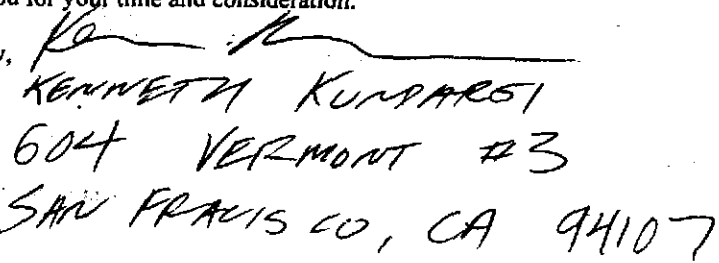 ou for your time and consideration.
KENNETH
604 VERMONT #3
SAN FRACISCO, CA 94107